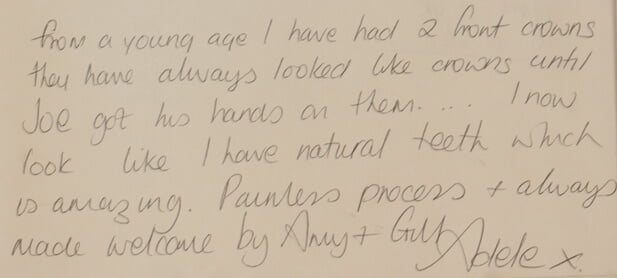 from a young age I have had 2 front crowns
they have always looked like crowns until
Joe got his hands on them.... I now
look like I have natural teeth which
is amazing. Painless process + always
made welcome by Amy + Adele x